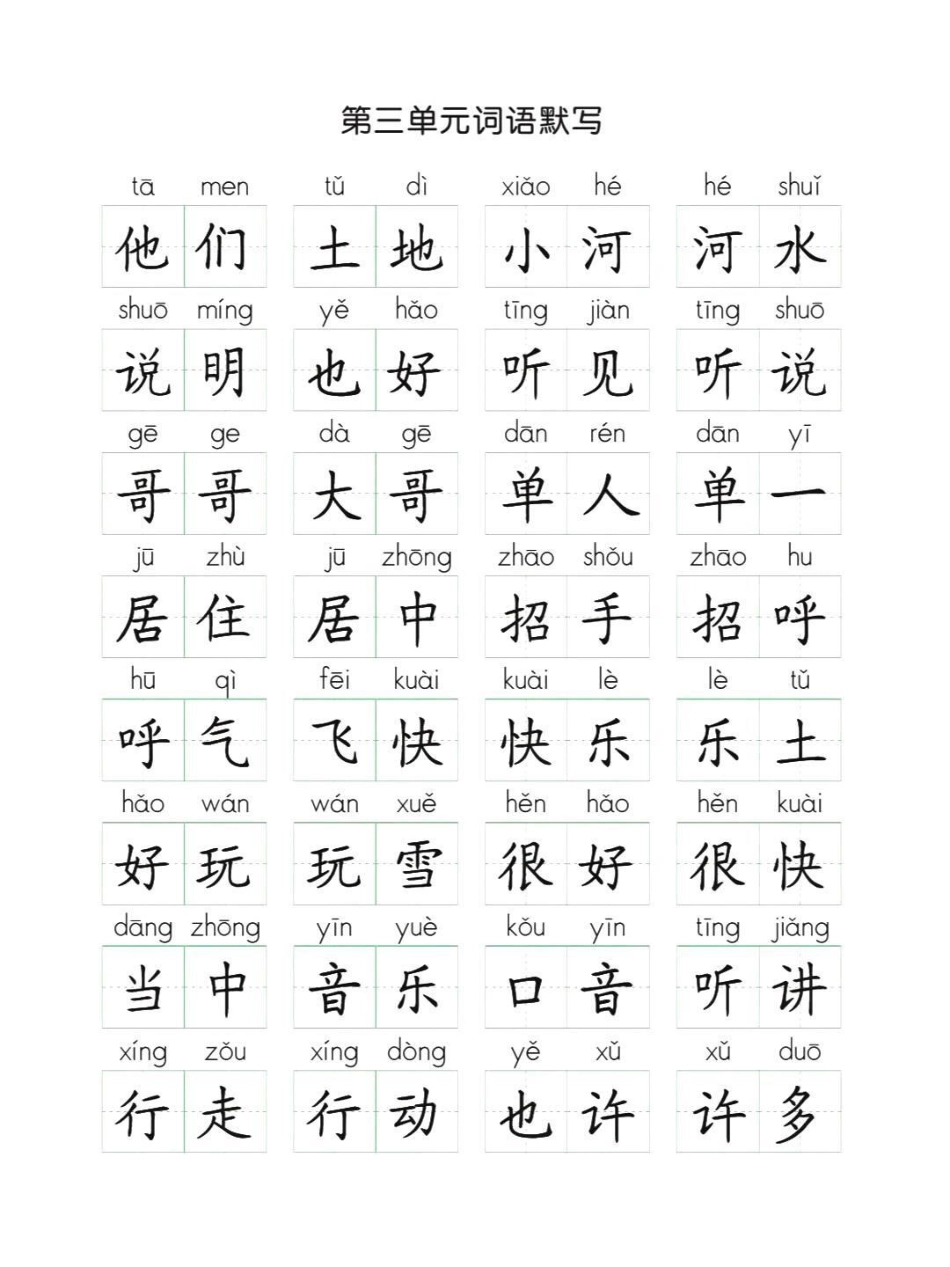 第三单元词语默写
tā men tǔ dì xiǎo hé hé shuǐ
他们 土地 小河 河水
shuō míng yě hǎo tīng jiàn tīng shuō
说明 也好 听见 听说
gē ge dà gē dān rén dān yī
哥哥 大哥 单人 单一
jū zhù jū zhōng zhāo shǒu zhāo hu
居住 居中 招手 招呼
hū qì fēi kuài kuài lè lè tǔ
呼气 飞快 快乐 乐土
hǎo wán wán xuě hěn hǎo hěn kuài
好玩 玩雪 很好 很快
dāng zhōng yīn yuè kǒu yīn tīng jiǎng
当中 音乐 口音 听讲
xíng zǒu xíng dòng yě xǔ xǔ duō
行走 行动 也许 许多